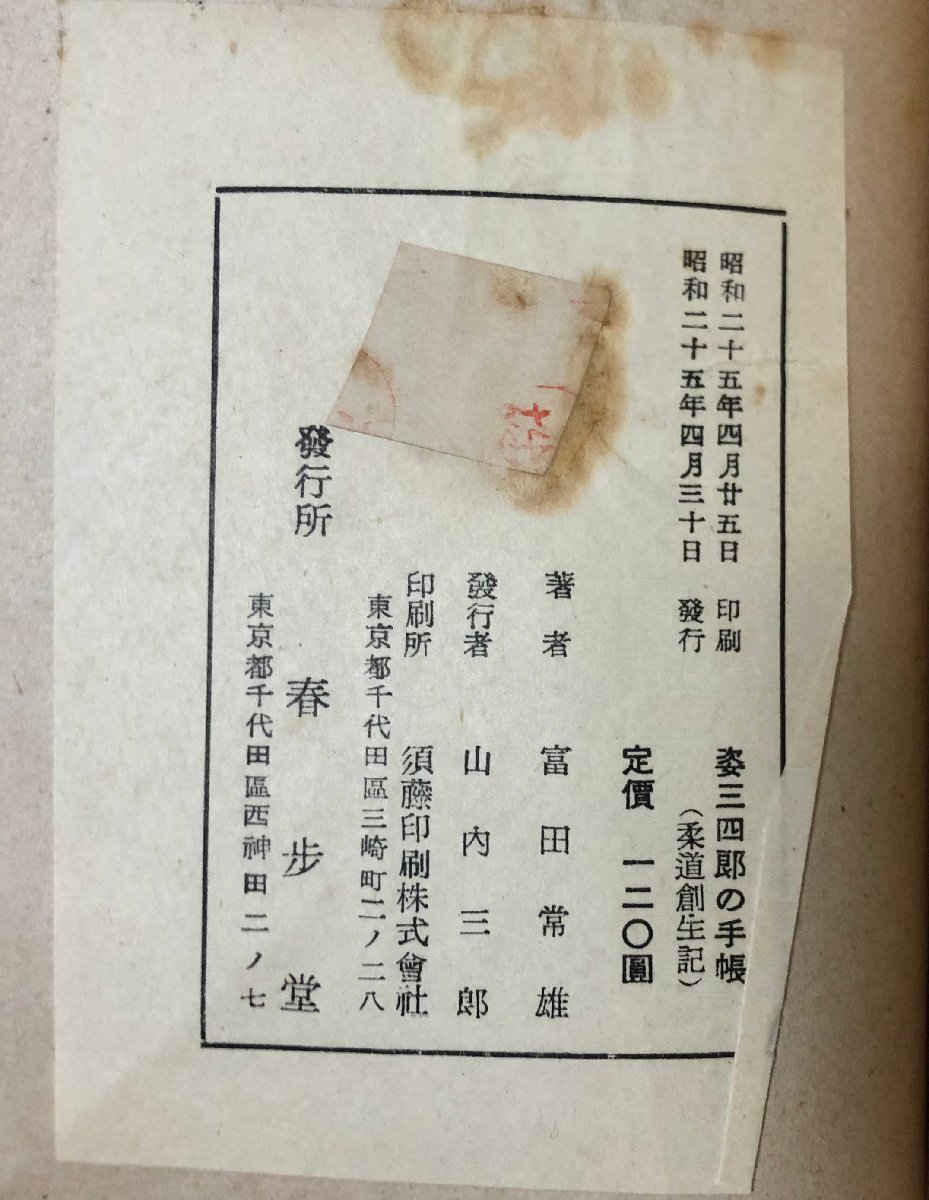 昭和二十五年四月廿五日 印刷
昭和二十五年四月三十日 發行
姿三四郎の手帳
(柔道創生記)
定價 一二〇圓
著者 富田常雄
發行者 山內三郎
印刷所 須藤印刷株式會社
東京都千代田區三崎町二ノ二八
發行所 春步堂
東京都千代田區西神田二ノ七